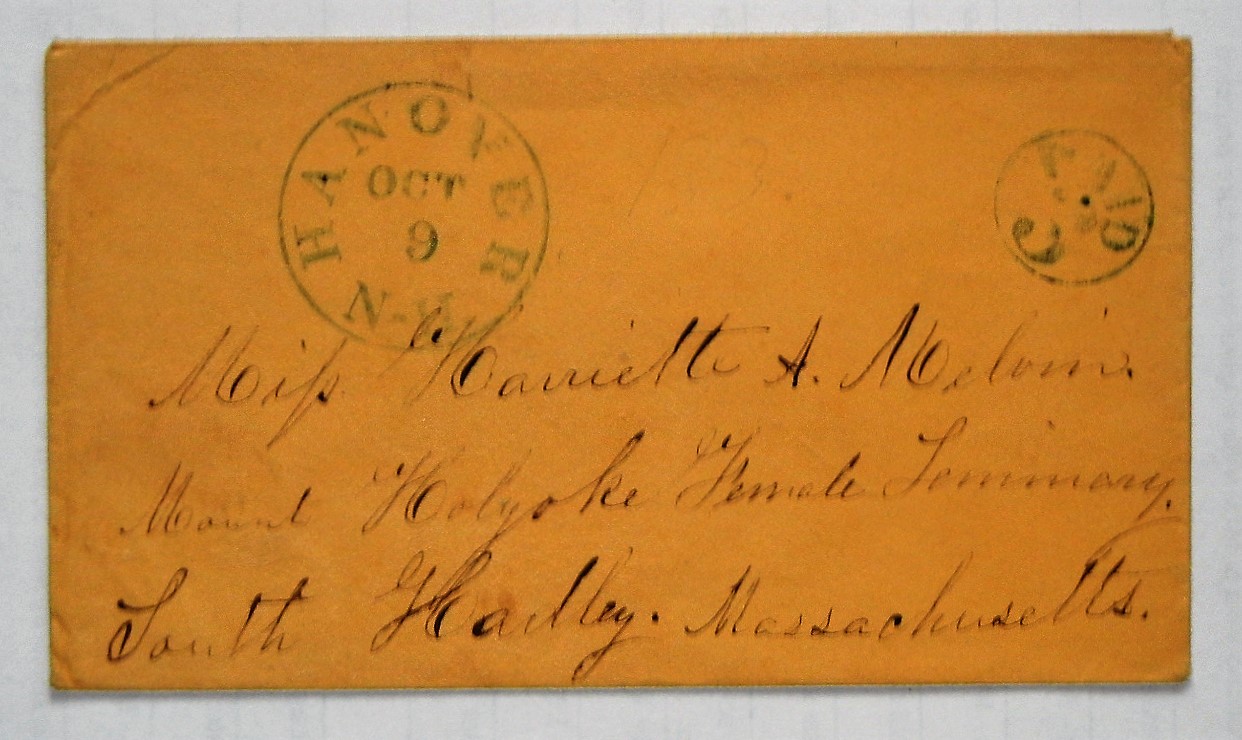 HANOVER
OCT
9
N.H.
PAID
3
Miſs Harriette A. Melvin.
Mount Holyoke Female Seminary.
South Hadley. Massachusetts.